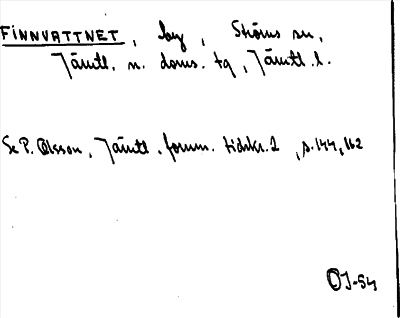 FINNVATTNET, by, Ströms sn,
Jämtl. n. doms. tg, Jämtl. l.
Se P. Olsson, Jämtl. fornm. tidskr. 1, s. 144, 162
OJ-54